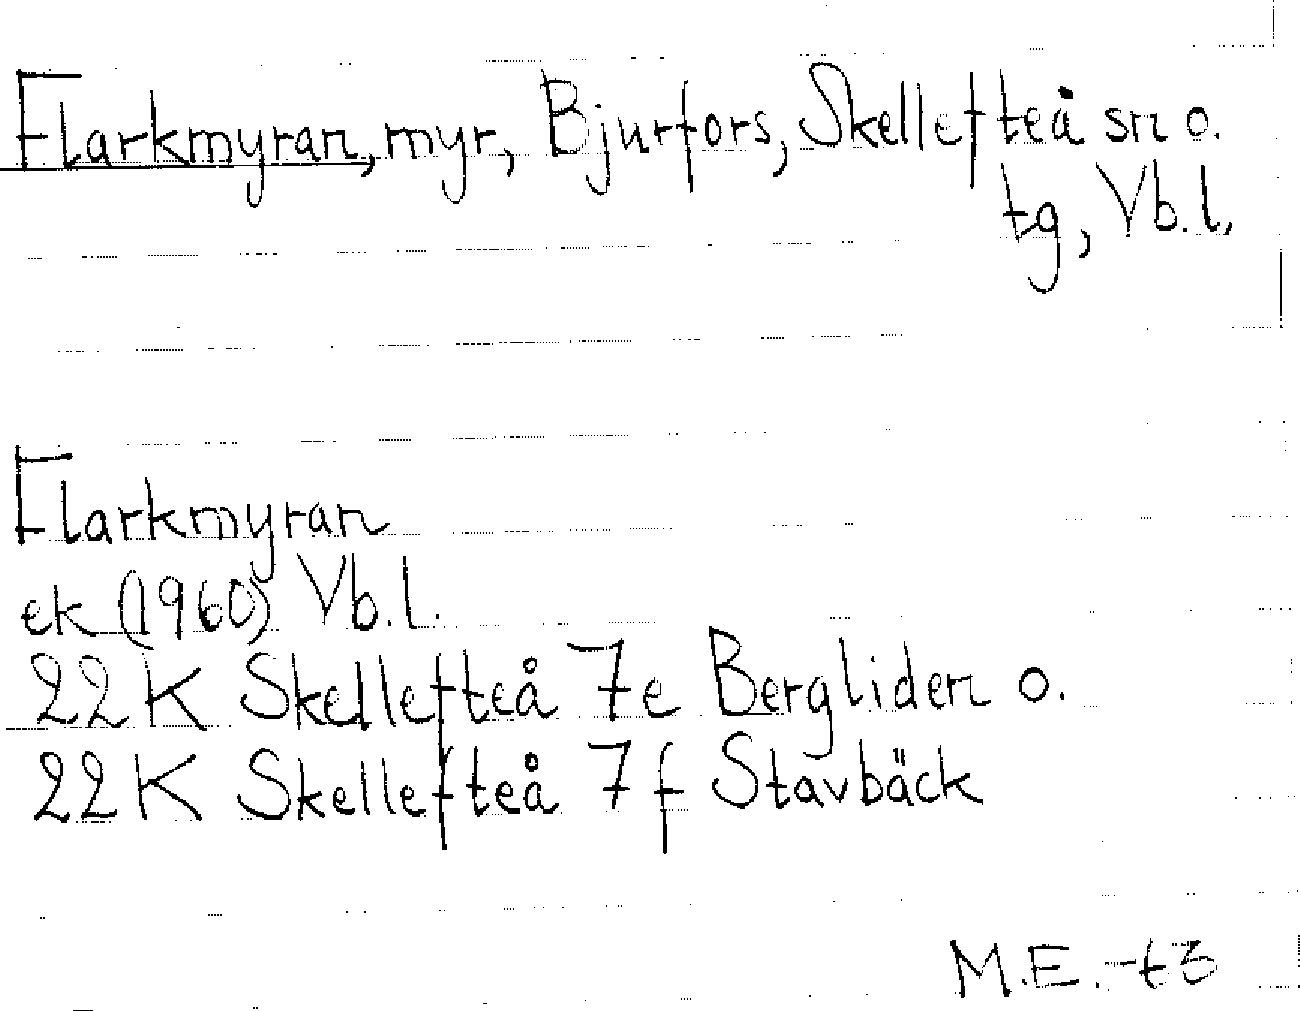 Flarkmyran, myr, Bjurfors, Skellefteå sn o.
tg, Vb.l.
Flarkmyran
ek (1960) Vb.l.
22K Skellefteå 7e Bergliden o.
22K Skellefteå 7f Stavbäck
M.E.